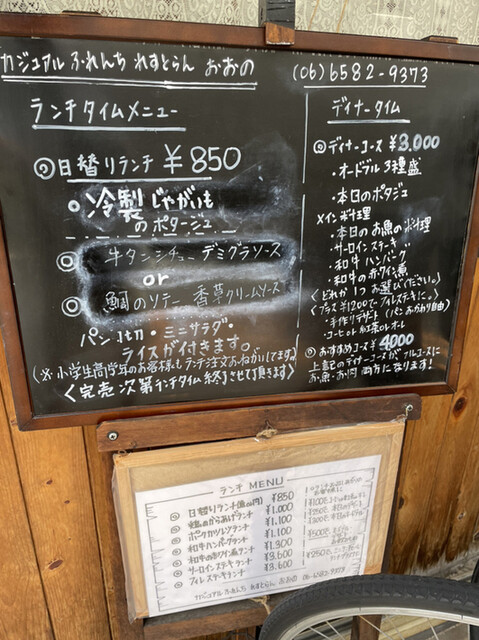 カジュアル ふれんち れすとらん おおの
(06)6582-9373
ランチタイムメニュー
◎日替りランチ ¥850
・冷製じゃがいも
のポタージュ
◎牛タンシチュー デミグラソース
or
◎鯛のソテー 香草クリームソース
パン1切・ミニサラダ・
ライスが付きます。
(※小学生高学年のお客様もランチ注文おねがいしてます。)
〈完売次第ランチタイム終了させて頂きます〉
ディナータイム
◎ディナーコース ¥3.000
・オードブル3種盛
・本日のポタージュ
メイン料理
・本日のお魚の料理
・サーロインステーキ
・和牛ハンバーグ
・和牛の赤ワイン煮
〈どれか1つお選びください。〉
プラス¥1200でフィレステーキに。
・手作りデザート (パンおかわり自由)
・コーヒor紅茶orオーレ
◎おすすめコース ¥4000
上記のディナーコースがフルコースに
お魚・お肉 両方になります!
ランチ MENU
◎日替りランチ ¥850
◎鶏のからあげランチ ¥1.000
◎ポークカツレツランチ ¥1.100
◎和牛ハンバーグランチ ¥1.100
◎和牛の赤ワイン煮ランチ ¥1.900
◎サーロインステーキランチ ¥3.600
◎フィレステーキランチ ¥3.600
カジュアル ふれんち れすとらん おおの 06-6582-9373